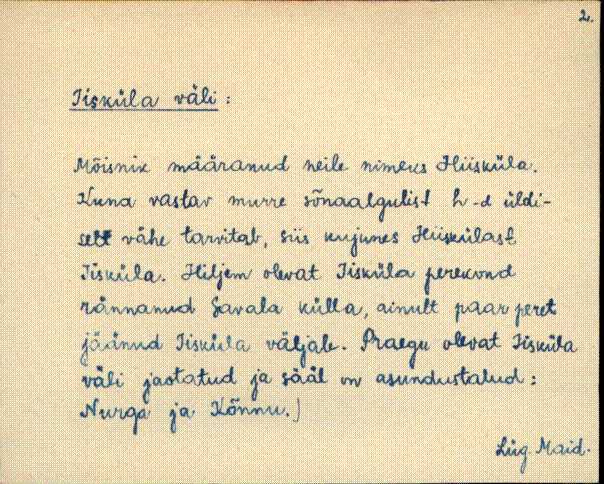 2.
Iisküla väli:
Mõisnik määranud neile nimeks Hiisküla.
Kuna vastav murre sõnaalgulist h-d üldi-
selt vähe tarvitab, siis kujunes Hiiskülast
Iisküla. Hiljem olevat Iisküla perekond
rännanud Savala külla, ainult paar peret
jäänud Iisküla väljale. Praegu olevat Iisküla
väli jaotatud ja sääl on asundustalud:
Nurga ja Kõnnu.)
Lüg. Maid.